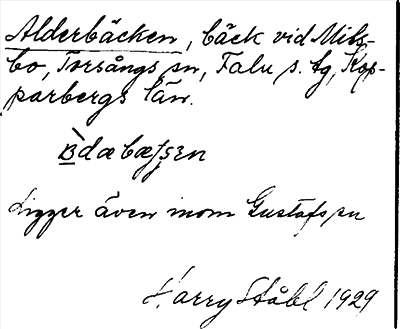 Alderbäcken, bäck vid Mils-
bo, Torsångs sn, Falu s. tg, Kop-
parbergs län.
Ligger även inom Gustafs sn
Harry Ståhl 1929